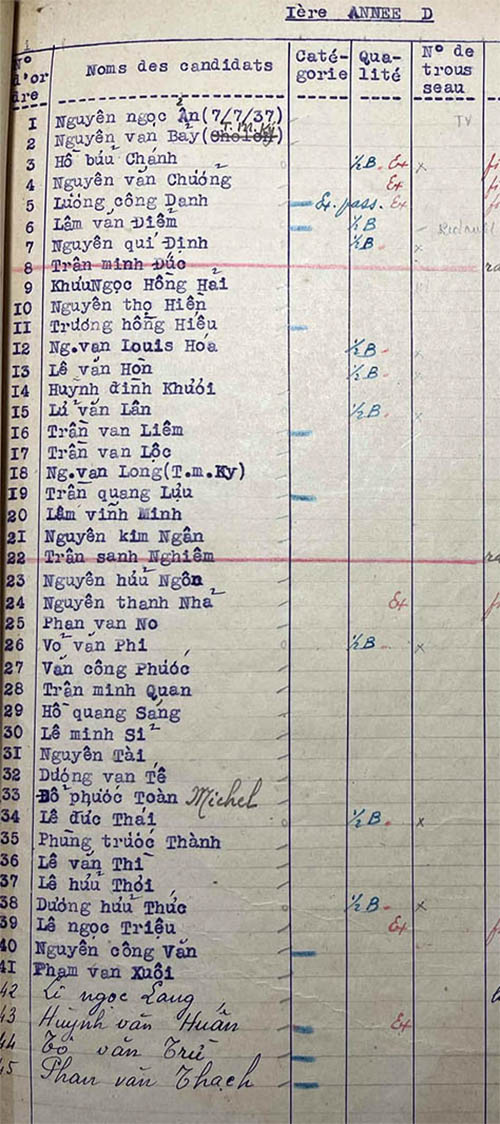 Ière ANNEE D
N° d'or dre Noms des candidats Caté- gorie Qua- lité N° de trous seau
1 Nguyên ngọc Ân(7/7/37)
2 Nguyên van Bảy(T.m.Ky)
3 Hồ bửu Chánh ½B. Ex x
4 Nguyên văn Chưởng Ex
5 Lương công Danh Ex. pass. Ex
6 Lâm văn Điểm ½B
7 Nguyên qui Định ½B x
8 Trân minh Đức
9 KhưuNgọc Hồng Hải
10 Nguyên thọ Hiền
11 Trương hồng Hiêu
12 Ng.van Louis Hóa ½B x
13 Lê văn Hơn ½B x
14 Huỳnh đình Khười
15 Lử văn Lân ½B x
16 Trần van Liêm
17 Trần van Lộc
18 Ng.van Long(T.m.Ky)
19 Trần quang Lựu
20 Lâm vĩnh Minh
21 Nguyên kim Ngân
22 Trân sanh Nghiêm
23 Nguyên hửu Ngôn
24 Nguyên thanh Nhả Ex
25 Phan van No
26 Vỏ văn Phi ½B x
27 Văn công Phước
28 Trần minh Quan
29 Hồ quang Sáng
30 Lê minh Sỉ
31 Nguyên Tài
32 Dương van Tê
33 Đổ phước Toàn Michel
34 Lê đức Thái ½B x
35 Phùng trước Thành
36 Lê văn Thì
37 Lê hửu Thới
38 Dương hửu Thức ½B x
39 Lê ngọc Triệu Ex
40 Nguyên công Văn
41 Phạm van Xuôi
42 Lê ngọc Lang
43 Huỳnh văn Huấn Ex
44 Tô văn Trử
45 Phan văn Thạch